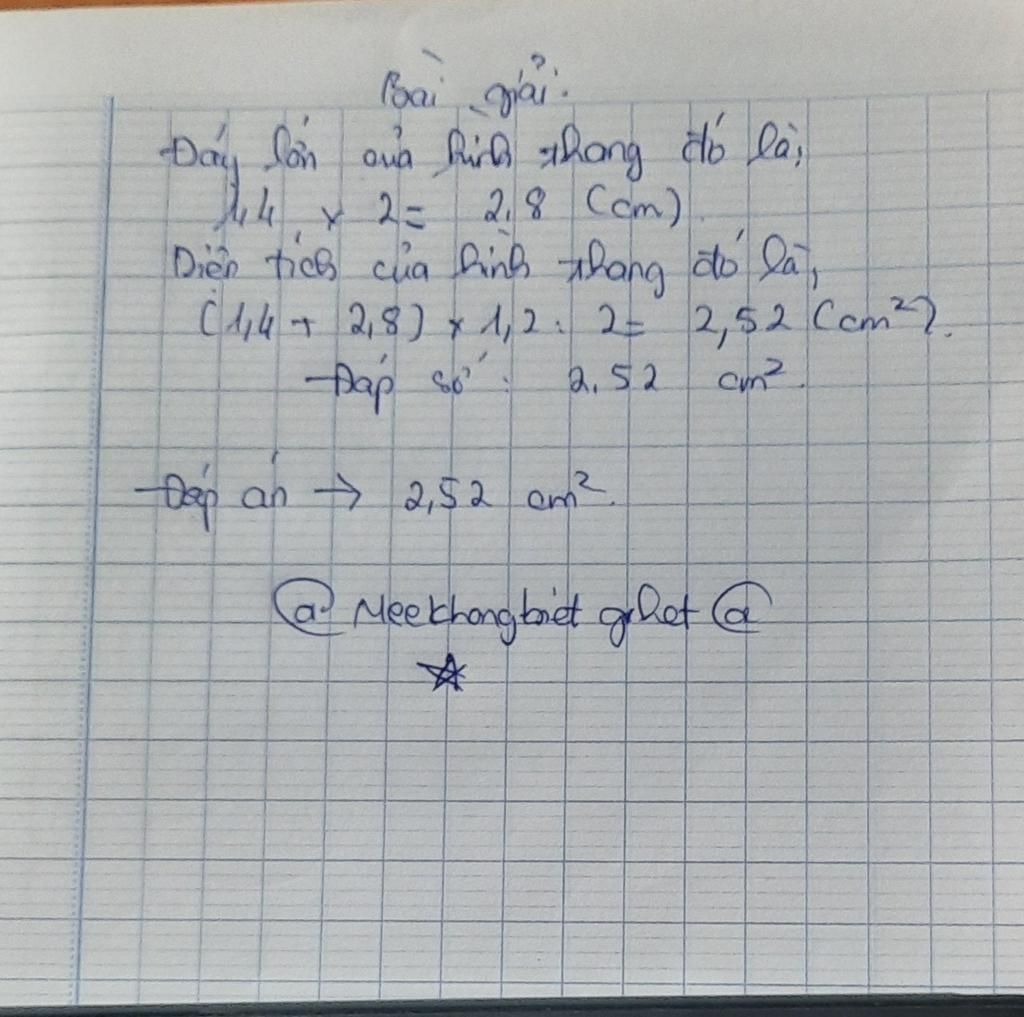 Bài giải:
Đáy lớn của hình thang đó là:
1,4 x 2 = 2,8 (cm)
Diện tích của hình thang đó là:
(1,4 + 2,8) x 1,2 : 2 = 2,52 (cm²).
Đáp số : 2,52 cm².
Đáp án → 2,52 cm².
@ Meekhongbiet ghet @